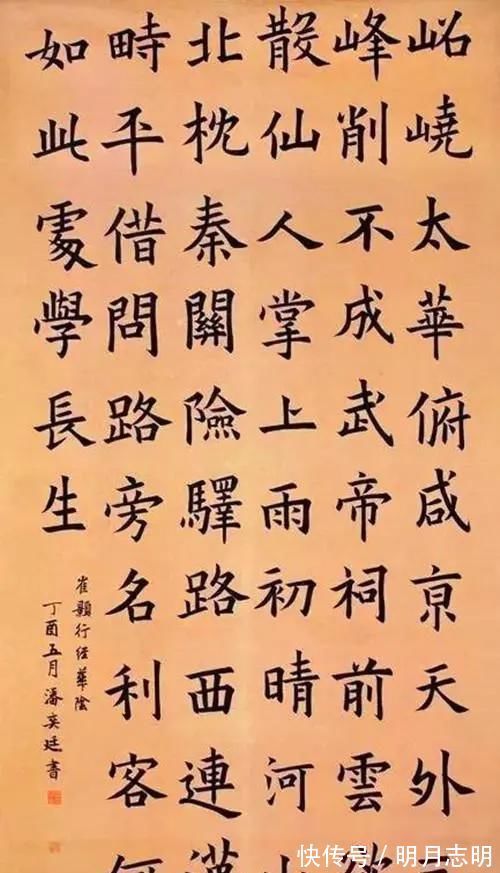 岹嶢太華俯咸亰天外
峰削不成武帝祠前雲欲
散仙人掌上雨初晴河山
北枕秦關險驛路西連漢
畤平借問路旁名利客何
如此處學長生
崔顥行經華陰
丁酉五月潘奕廷書
快传号／明月志明